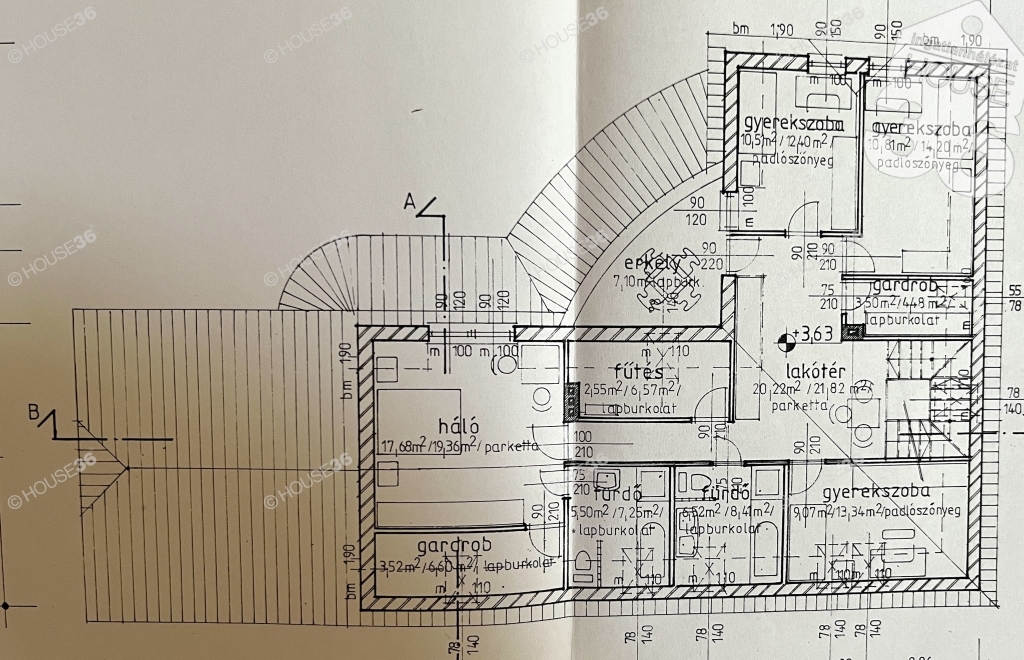 © HOUSE36
© HOUSE36
© HOUSE36
© HOUSE36
bm 1,90
90
150
90
150
bm 1,90
Ingatlanhálózat
m 100
m 100
gyerekszoba
10,51m²/12,40m²/
padlószőnyeg
gyerekszoba
10,81m²/14,20m²/
padlószőnyeg
100
m
90
120
A
90
210
90
210
90
220
erkély
7,10m² lapburk.
gardrob
3,50m²/4,48m²/
lapburkolat
75
210
55
78
+3,63
90
120
90
120
m 100
m 100
bm 1,90
m 110
fűtés
2,55m²/6,57m²/
lapburkolat
lakótér
20,22m²/21,82m²/
parketta
78
140
B
háló
17,68m²/19,36m²/parketta
100
210
90
210
90
210
75
210
75
210
90
210
fürdő
5,50m²/7,25m²/
lapburkolat
fürdő
6,52m²/8,41m²/
lapburkolat
gyerekszoba
9,07m²/13,34m²/padlószőnyeg
gardrob
3,52m²/6,60m²/lapburkolat
bm 1,90
m 110
m 110
m 110
m 110
78
140
78
140
78
140
78
140
© HOUSE36
© HOUSE36
© HOUSE36
© HOUSE36